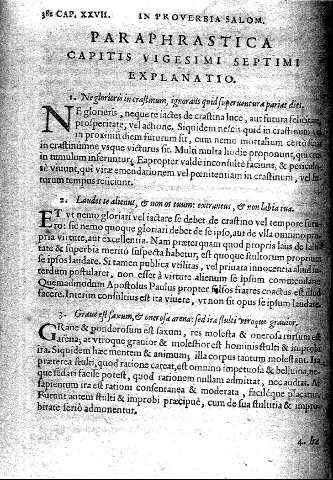 382 CAP. XXVII. IN PROVERBIA SALOM.
PARAPHRASTICA
CAPITIS VIGESIMI SEPTIMI
EXPLANATIO.
1. Ne glorieris in crastinum, ignorans quid superuentura pariat dies.
NE glorieris, neque te iactes de crastina luce, aut futura felicitate,
prosperitate, vel actione. Siquidem nescis quid in crastinum, vel
in proximũ diem futurum sit, cum nemo mortalium certò sciat
in crastinumne vsque victurus sit. Multi multa hodie proponunt, qui cras
in tumulum inferuntur. Eapropter valdè inconsultè faciunt, & perniciosè
sè viuunt, qui vitæ emendationem vel pœnitentiam in crastinum, vel
turum tempus reiiciunt.
2. Laudet te alienus, & non os tuum: extraneus, & non labia tua.
ET vt nemo gloriari vel iactare se debet de crastino vel tempore futu-
ro: sic nemo quoque gloriari debet de se ipso, aut de vlla
pria virtute, aut excellentia. Nam præterquam quod propria laus de
tua & superbia meritò suspecta habetur, est quoque stultorum
se ipsos laudare. Si tamen publica vtilitas, vel priuata innocentia aliud in-
terdum postularet, non esset à virtute alienum se ipsum commendare.
Quemadmodum Apostolus Paulus propter falsos fratres coactus est
facere. Interim consultius est ita viuere, vt non sit opus se ipsum laudare.
3. Graue est saxum, & onerosa arena: sed ira stulti vtroque grauior.
GRaue & ponderosum est saxum, res molesta & onerosa rursum est
arena; at vtroque grauior & molestior est hominis stulti & improbi
ira. Siquidem hæc mentem & animum; illa corpus tantum molestant. Ira
præterea stulti, quod ratione careat, est omnino impetuosa & belluina, ne-
que sedari facilè potest, quod rationem nullam admittat, nec audiat. At
sapientum ira est rationi consentanea & moderata, facileque placatur.
Furunt autem stulti & improbi præcipuè, cum de sua stultitia & impro-
bitate seriò admonentur.
4. Ira